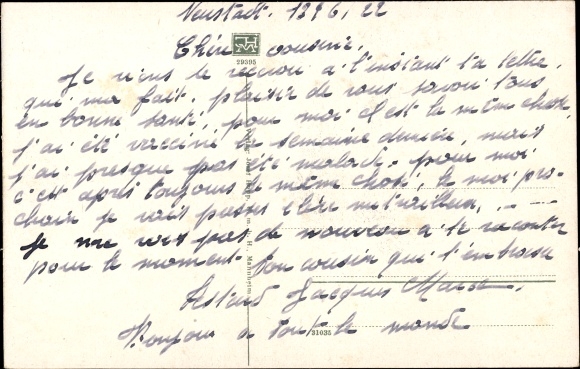 Neustadt. 1326, 22
Chère cousine,
29395
Je viens de recevoir à l'instant ta lettre,
qui ma fait plaisir de vous savoir tous
en bonne santé, pour moi c'est la même chose,
j'ai été vacciné la semaine dernière, mais
j'ai presque pas été malade. pour moi
c'est après toujours la même chose, le moi pro-
chain je vais passer
Je ne vois pas de nouveau à te raconter
pour le moment. Ton cousin qui t'embrasse
Jacques
Bonjour à tout le monde
31035
G. m. b. H., Mannheim